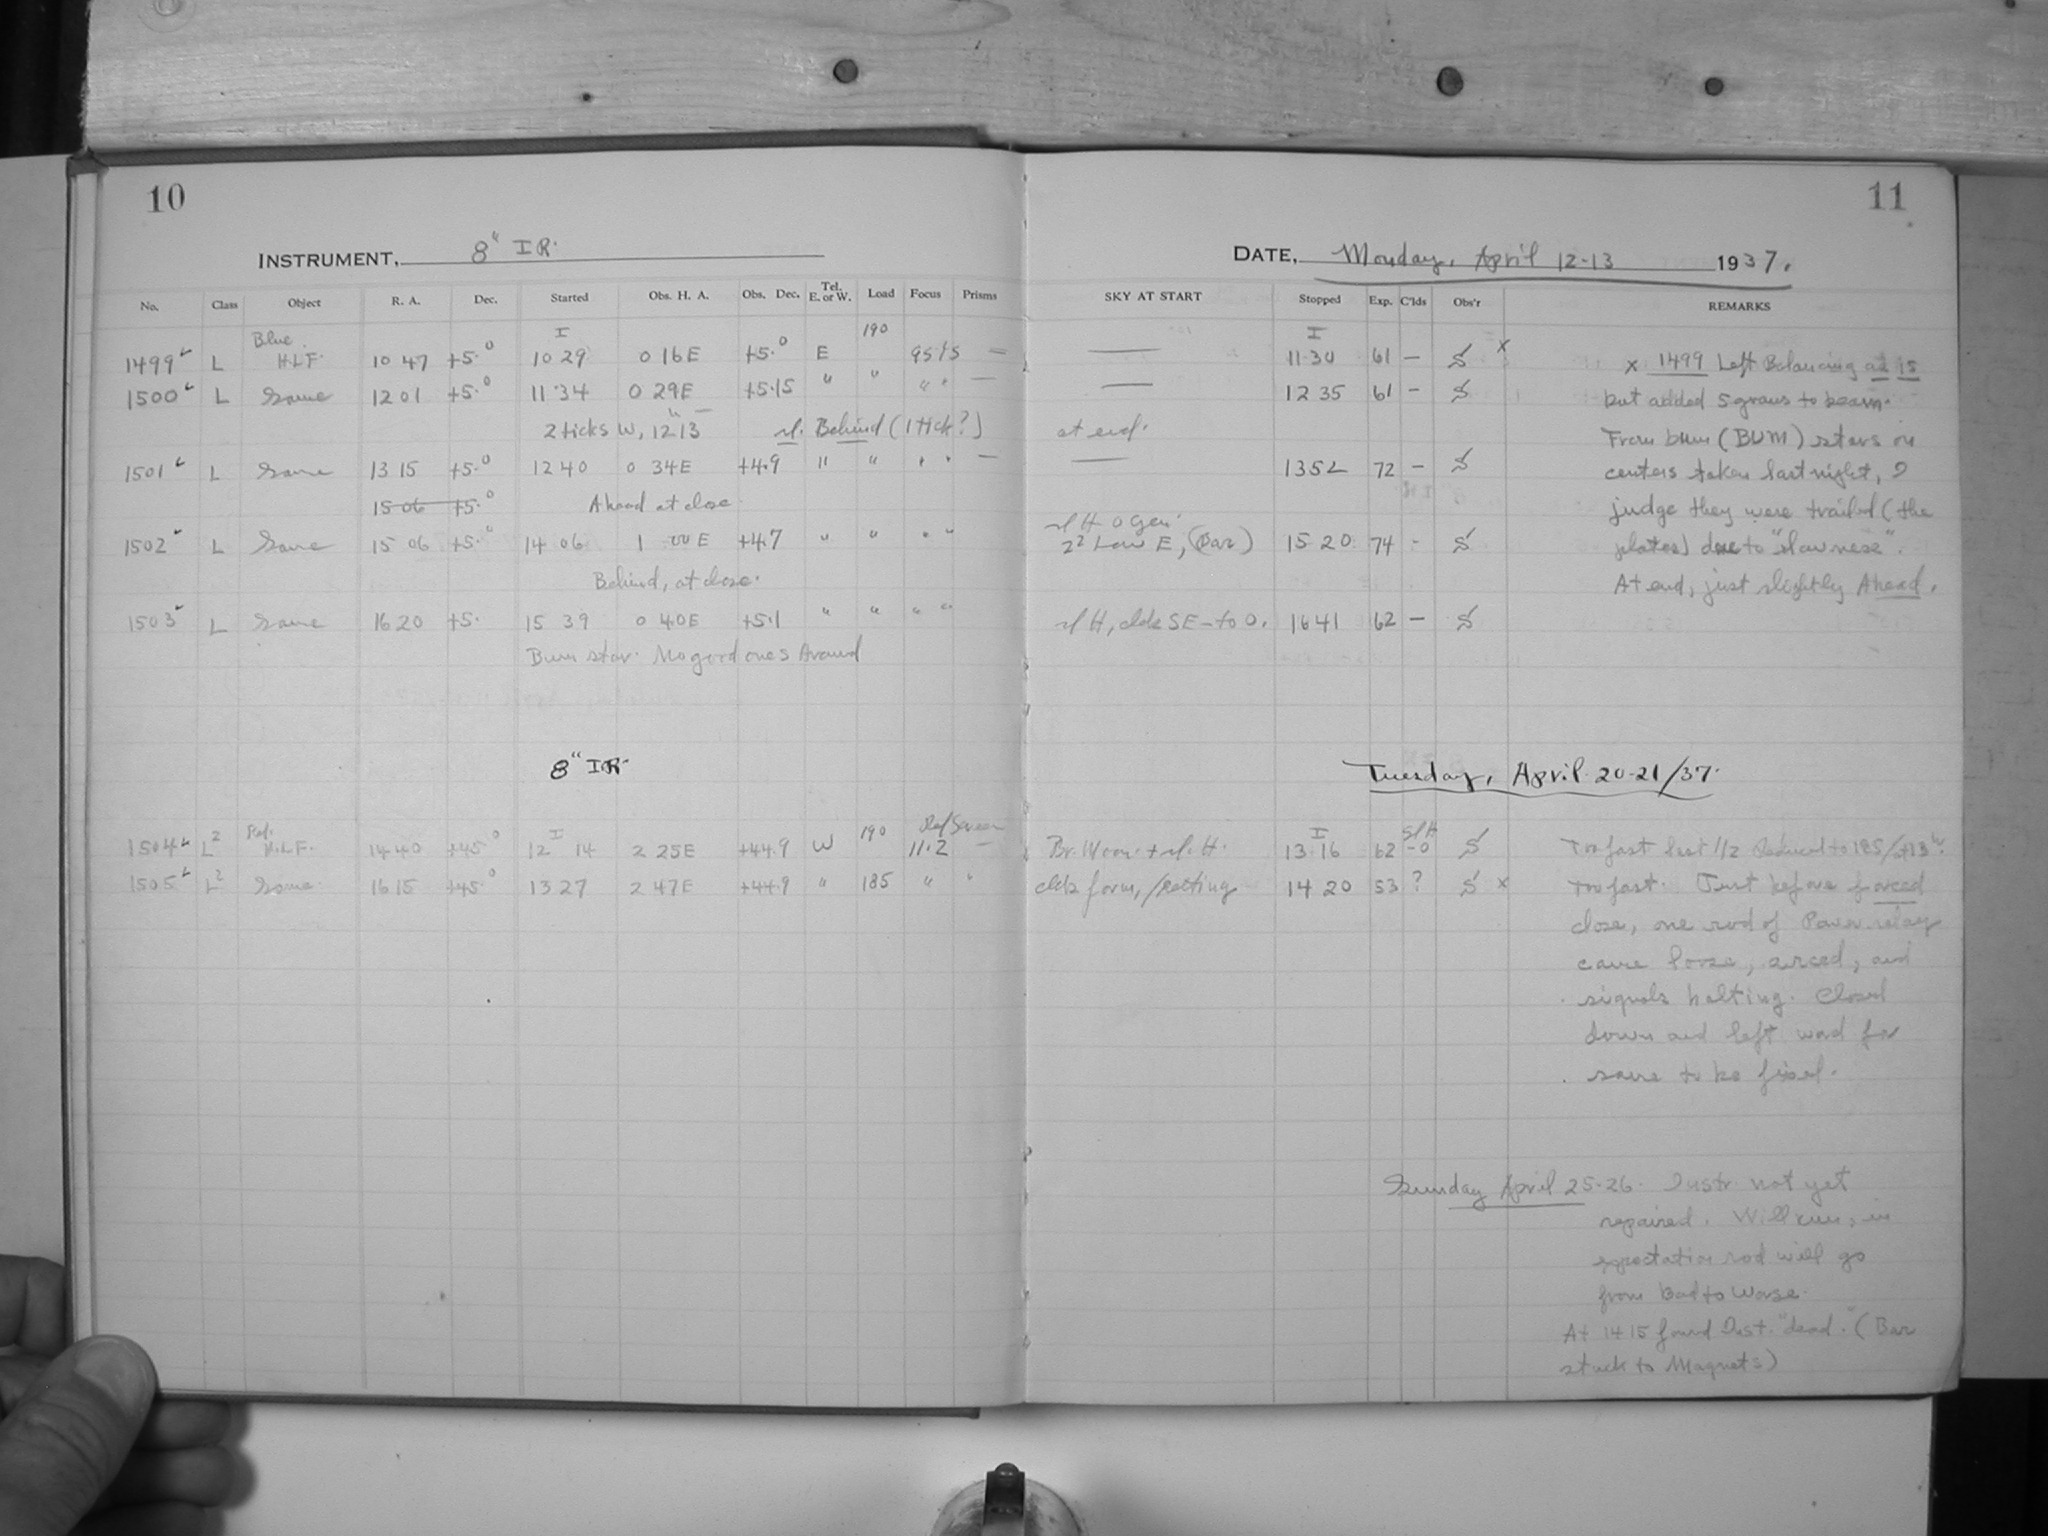 10
INSTRUMENT, 8" IR.
No. Class Object R. A. Dec. Started Obs. H. A. Obs. Dec. Tel. E. or W. Load Focus Prisms
Blue. I 190
1499 L H.L.F. 10 47 +5.0 10 29 0 16 E +5.0 E 95 —
1500 L Same 12 01 +5.0 11 34 0 29 E +5.15 " " " " —
2 ticks W, 12 13 Behind (1 tick?)
1501 L Same 13 15 +5.0 12 40 0 34 E +4.9 " " " " —
15 06 +5.0 Ahead at close.
1502 L Same 15 06 +5. 14 06 1 00 E +4.7 " " " "
Behind, at close.
1503 L Same 16 20 +5. 15 39 0 40 E +5.1 " " " "
Bum star. No good ones Around
8" IR.
Red. I 190
1504 L2 H.L.F. 14 40 +45.0 12 14 2 25 E +44.9 W 11.2 —
1505 L2 Same. 16 15 +45.0 13 27 2 47 E +44.9 " 185 " "
11
DATE, Monday, April 12-13 1937.
SKY AT START Stopped Exp. C'lds Obs'r REMARKS
I
— 11 30 61 — S x
— 12 35 61 — S
at end.
— 13 52 72 — S
22 Low E, (Bar) 15 20 74 - S
H, clds SE - to 0. 16 41 62 — S
x 1499 Left Balancing at 15
but added 5 grams to beam.
From bum (BUM) stars on
centers taken last night, I
judge they were trailed (the
plates) due to "slowness".
At end, just slightly Ahead.
Tuesday, April 20-21/37.
I
Br. Moon + H. 13 16 62 -0 S Too fast last 1/2 Reduced to 185/
clds form, 14 20 53 ? S x Too fast. Just before forced
close, one rod of Power relay
came loose, arced, and
signals halting. Closed
down and left word for
same to be fixed.
Sunday April 25-26. Instr. not yet
repaired. Will run, in
expectation rod will go
from bad to worse.
At 14 15 found Inst. "dead." (Bar
stuck to Magnets)